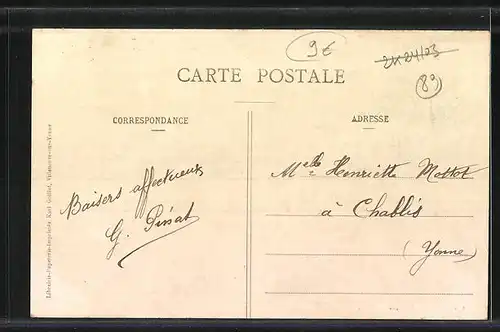 9€
2K24/03
89
CARTE POSTALE
CORRESPONDANCE
ADRESSE
Baisers affectueux
G. Pinat
Melle Henriette Mottot
à Chablis
(Yonne)
Librairie-Papeterie-Imprimerie, Karl Guillot, Villeneuve-sur-Yonne